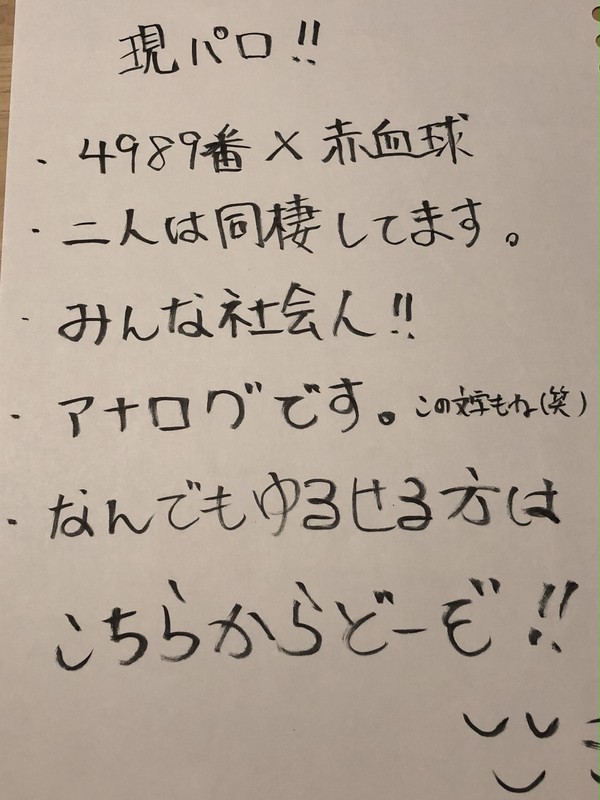 現パロ!!
・4989番×赤血球
・二人は同棲してます。
・みんな社会人!!
・アナログです。この文字もね(笑)
・なんでもゆるせる方は
こちらからどーぞ!!